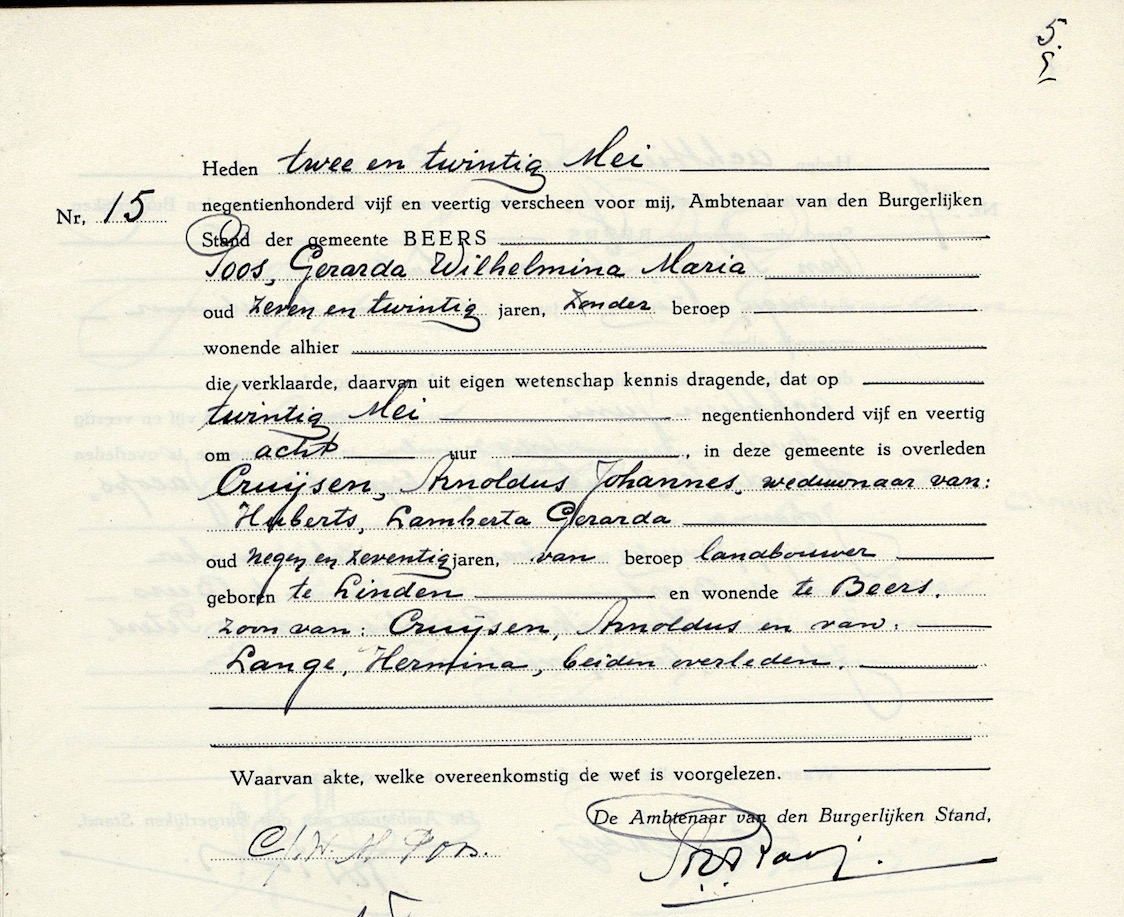 5.
Heden twee en twintig Mei
Nr. 15
negentienhonderd vijf en veertig verscheen voor mij, Ambtenaar van den Burgerlijken
Stand der gemeente BEERS
Poos, Gerarda Wilhelmina Maria
oud zeven en twintig jaren, zonder beroep
wonende alhier
die verklaarde, daarvan uit eigen wetenschap kennis dragende, dat op
twintig Mei negentienhonderd vijf en veertig
om acht uur , in deze gemeente is overleden
Cruijsen, Arnoldus Johannes, weduwnaar van:
Huberts, Lamberta Gerarda
oud negen en zeventig jaren, van beroep landbouwer
geboren te Linden en wonende te Beers.
zoon van: Cruijsen, Arnoldus en van:
Lange, Hermina, beiden overleden.
Waarvan akte, welke overeenkomstig de wet is voorgelezen.
De Ambtenaar van den Burgerlijken Stand,